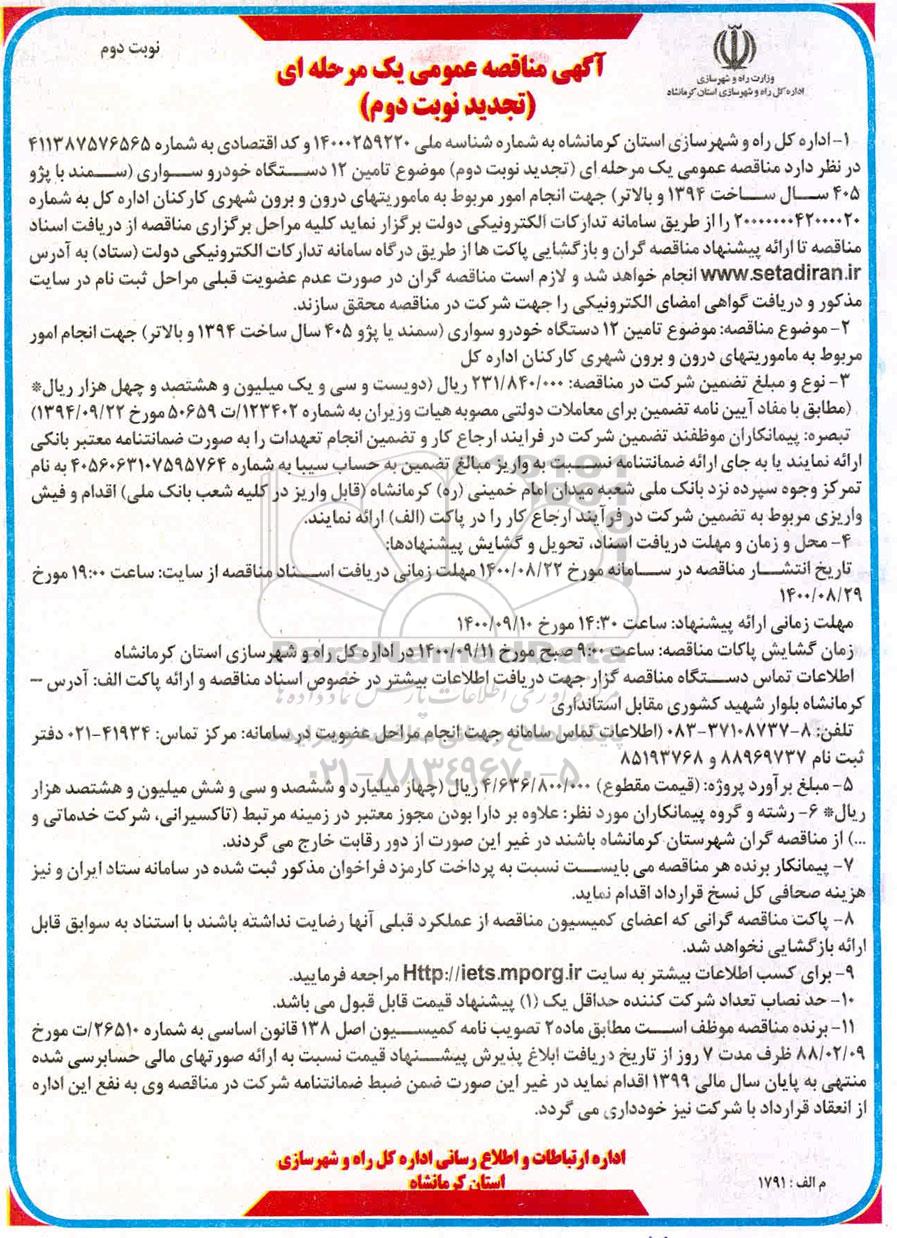 نوبت دوم
وزارت راه و شهرسازی
اداره کل راه و شهرسازی استان کرمانشاه
آگهی مناقصه عمومی یک مرحله ای
(تجدید نوبت دوم)
۱- اداره کل راه و شهرسازی استان کرمانشاه به شماره شناسه ملی ۱۴۰۰۰۲۵۹۲۲۰ و کد اقتصادی به شماره ۴۱۱۳۸۷۵۷۶۵۶۵
در نظر دارد مناقصه عمومی یک مرحله ای (تجدید نوبت دوم) موضوع تامین ۱۲ دستگاه خودرو سواری (سمند با پژو
۴۰۵ سال ساخت ۱۳۹۴ و بالاتر) جهت انجام امور مربوط به ماموریتهای درون و برون شهری کارکنان اداره کل به شماره
۲۰۰۰۰۰۰۰۴۲۰۰۰۰۲۰ را از طریق سامانه تدارکات الکترونیکی دولت برگزار نماید کلیه مراحل برگزاری مناقصه از دریافت اسناد
مناقصه تا ارائه پیشنهاد مناقصه گران و بازگشایی پاکت ها از طریق درگاه سامانه تدارکات الکترونیکی دولت (ستاد) به آدرس
www.setadiran.ir انجام خواهد شد و لازم است مناقصه گران در صورت عدم عضویت قبلی مراحل ثبت نام در سایت
مذکور و دریافت گواهی امضای الکترونیکی را جهت شرکت در مناقصه محقق سازند.
۲- موضوع مناقصه: موضوع تامین ۱۲ دستگاه خودرو سواری (سمند یا پژو ۴۰۵ سال ساخت ۱۳۹۴ و بالاتر) جهت انجام امور
مربوط به ماموریتهای درون و برون شهری کارکنان اداره کل
۳- نوع و مبلغ تضمین شرکت در مناقصه: ۲۳۱/۸۴۰/۰۰۰ ریال (دویست و سی و یک میلیون و هشتصد و چهل هزار ریال*
(مطابق با مفاد آیین نامه تضمین برای معاملات دولتی مصوبه هیات وزیران به شماره ۱۲۳۴۰۲/ت ۵۰۶۵۹ مورخ ۱۳۹۴/۰۹/۲۲)
تبصره: پیمانکاران موظفند تضمین شرکت در فرایند ارجاع کار و تضمین انجام تعهدات را به صورت ضمانتنامه معتبر بانکی
ارائه نمایند یا به جای ارائه ضمانتنامه نسبت به واریز مبالغ تضمین به حساب سیبا به شماره ۴۰۵۶۰۶۳۱۰۷۵۹۵۷۶۴ به نام
تمرکز وجوه سپرده نزد بانک ملی شعبه میدان امام خمینی (ره) کرمانشاه (قابل واریز در کلیه شعب بانک ملی) اقدام و فیش
واریزی مربوط به تضمین شرکت در فرآیند ارجاع کار را در پاکت (الف) ارائه نمایند.
۴- محل و زمان و مهلت دریافت اسناد، تحویل و گشایش پیشنهادها:
تاریخ انتشار مناقصه در سامانه مورخ ۱۴۰۰/۰۸/۲۲ مهلت زمانی دریافت اسناد مناقصه از سایت: ساعت ۱۹:۰۰ مورخ
۱۴۰۰/۰۸/۲۹
مهلت زمانی ارائه پیشنهاد: ساعت ۱۴:۳۰ مورخ ۱۴۰۰/۰۹/۱۰
زمان گشایش پاکات مناقصه: ساعت ۹:۰۰ صبح مورخ ۱۴۰۰/۰۹/۱۱ در اداره کل راه و شهرسازی استان کرمانشاه
اطلاعات تماس دستگاه مناقصه گزار جهت دریافت اطلاعات بیشتر در خصوص اسناد مناقصه و ارائه پاکت الف: آدرس –
کرمانشاه بلوار شهید کشوری مقابل استانداری
تلفن: ۸-۳۷۱۰۸۷۳۷-۰۸۳ (اطلاعات تماس سامانه جهت انجام مراحل عضویت در سامانه: مرکز تماس: ۴۱۹۳۴-۰۲۱ دفتر
ثبت نام ۸۸۹۶۹۷۳۷ و ۸۵۱۹۳۷۶۸
ParsNamadData
۰۲۱-۸۸۳۴۹۶۷۰-۵
۵- مبلغ برآورد پروژه: (قیمت مقطوع) ۴/۶۳۶/۸۰۰/۰۰۰ ریال (چهار میلیارد و ششصد و سی و شش میلیون و هشتصد هزار
ریال* ۶- رشته و گروه پیمانکاران مورد نظر: علاوه بر دارا بودن مجوز معتبر در زمینه مرتبط (تاکسیرانی، شرکت خدماتی و
...) از مناقصه گران شهرستان کرمانشاه باشند در غیر این صورت از دور رقابت خارج می گردند.
۷- پیمانکار برنده هر مناقصه می بایست نسبت به پرداخت کارمزد فراخوان مذکور ثبت شده در سامانه ستاد ایران و نیز
هزینه صحافی کل نسخ قرارداد اقدام نماید.
۸- پاکت مناقصه گرانی که اعضای کمیسیون مناقصه از عملکرد قبلی آنها رضایت نداشته باشند با استناد به سوابق قابل
ارائه بازگشایی نخواهد شد.
۹- برای کسب اطلاعات بیشتر به سایت Http://iets.mporg.ir مراجعه فرمایید.
۱۰- حد نصاب تعداد شرکت کننده حداقل یک (۱) پیشنهاد قیمت قابل قبول می باشد.
۱۱- برنده مناقصه موظف است مطابق ماده۲ تصویب نامه کمیسیون اصل ۱۳۸ قانون اساسی به شماره ۲۶۵۱۰/ت مورخ
۸۸/۰۲/۰۹ ظرف مدت ۷ روز از تاریخ دریافت ابلاغ پذیرش پیشنهاد قیمت نسبت به ارائه صورتهای مالی حسابرسی شده
منتهی به پایان سال مالی ۱۳۹۹ اقدام نماید در غیر این صورت ضمن ضبط ضمانتنامه شرکت در مناقصه وی به نفع این اداره
از انعقاد قرارداد با شرکت نیز خودداری می گردد.
اداره ارتباطات و اطلاع رسانی اداره کل راه و شهرسازی
استان کرمانشاه
م الف : ۱۷۹۱